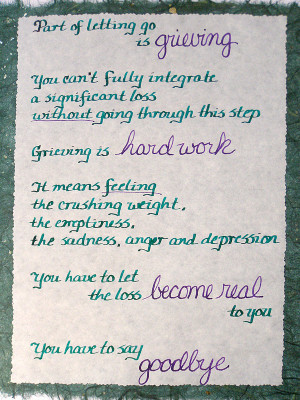 Part of letting go
is grieving
You can't fully integrate
a significant loss
without going through this step
Grieving is hard work
It means feeling
the crushing weight,
the emptiness,
the sadness, anger and depression
You have to let
the loss become real
to you
You have to say
goodbye